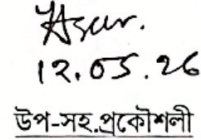 12.05.26
উপ-সহ.প্রকৌশলী